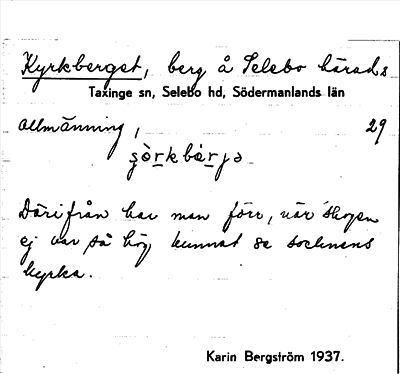 Kyrkberget, berg å Selebo härads
Taxinge sn, Selebo hd, Södermanlands län
allmänning, 29
şòrkbærjə
Därifrån har man förr, när skogen
ej var så hög, kunnat se socknens
kyrka.
Karin Bergström 1937.